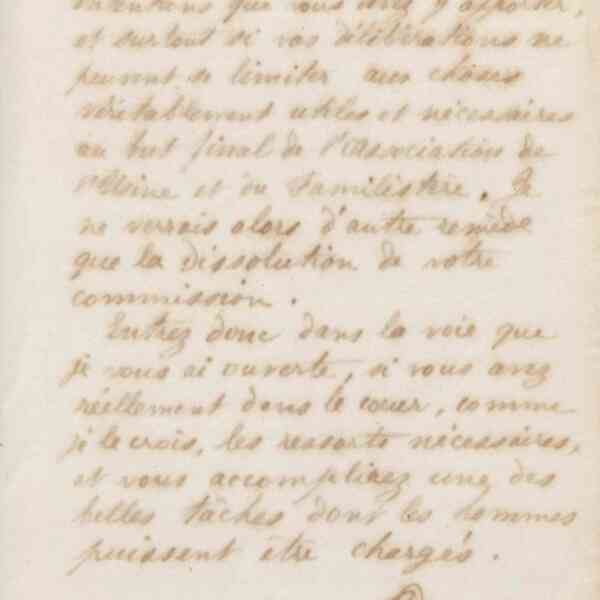 intentions que vous avez y apporter,
et surtout si vos délibérations ne
peuvent se limiter aux choses
véritablement utiles et nécessaires
au but final de l'association de
l'Usine et du Familistère. Je
ne verrais alors d'autre remède
que la dissolution de votre
commission.
Entrez donc dans la voie que
je vous ai ouverte, si vous avez
réellement dans le cœur, comme
je le crois, les ressorts nécessaires,
et vous accomplirez une des
belles tâches dont les hommes
puissent être chargés.